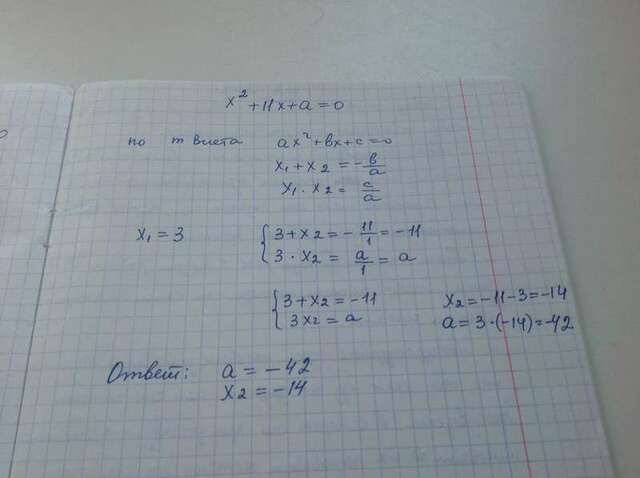 x² + 11x + a = 0
по т Виета ax² + вx + c = 0
x₁ + x₂ = - в/a
x₁ · x₂ = c/a
x₁ = 3
{ 3 + x₂ = - 11/1 = -11
3 · x₂ = a/1 = a
{ 3 + x₂ = -11 x₂ = -11 - 3 = -14
3x₂ = a a = 3 · (-14) = -42
Ответ: a = -42
x₂ = -14